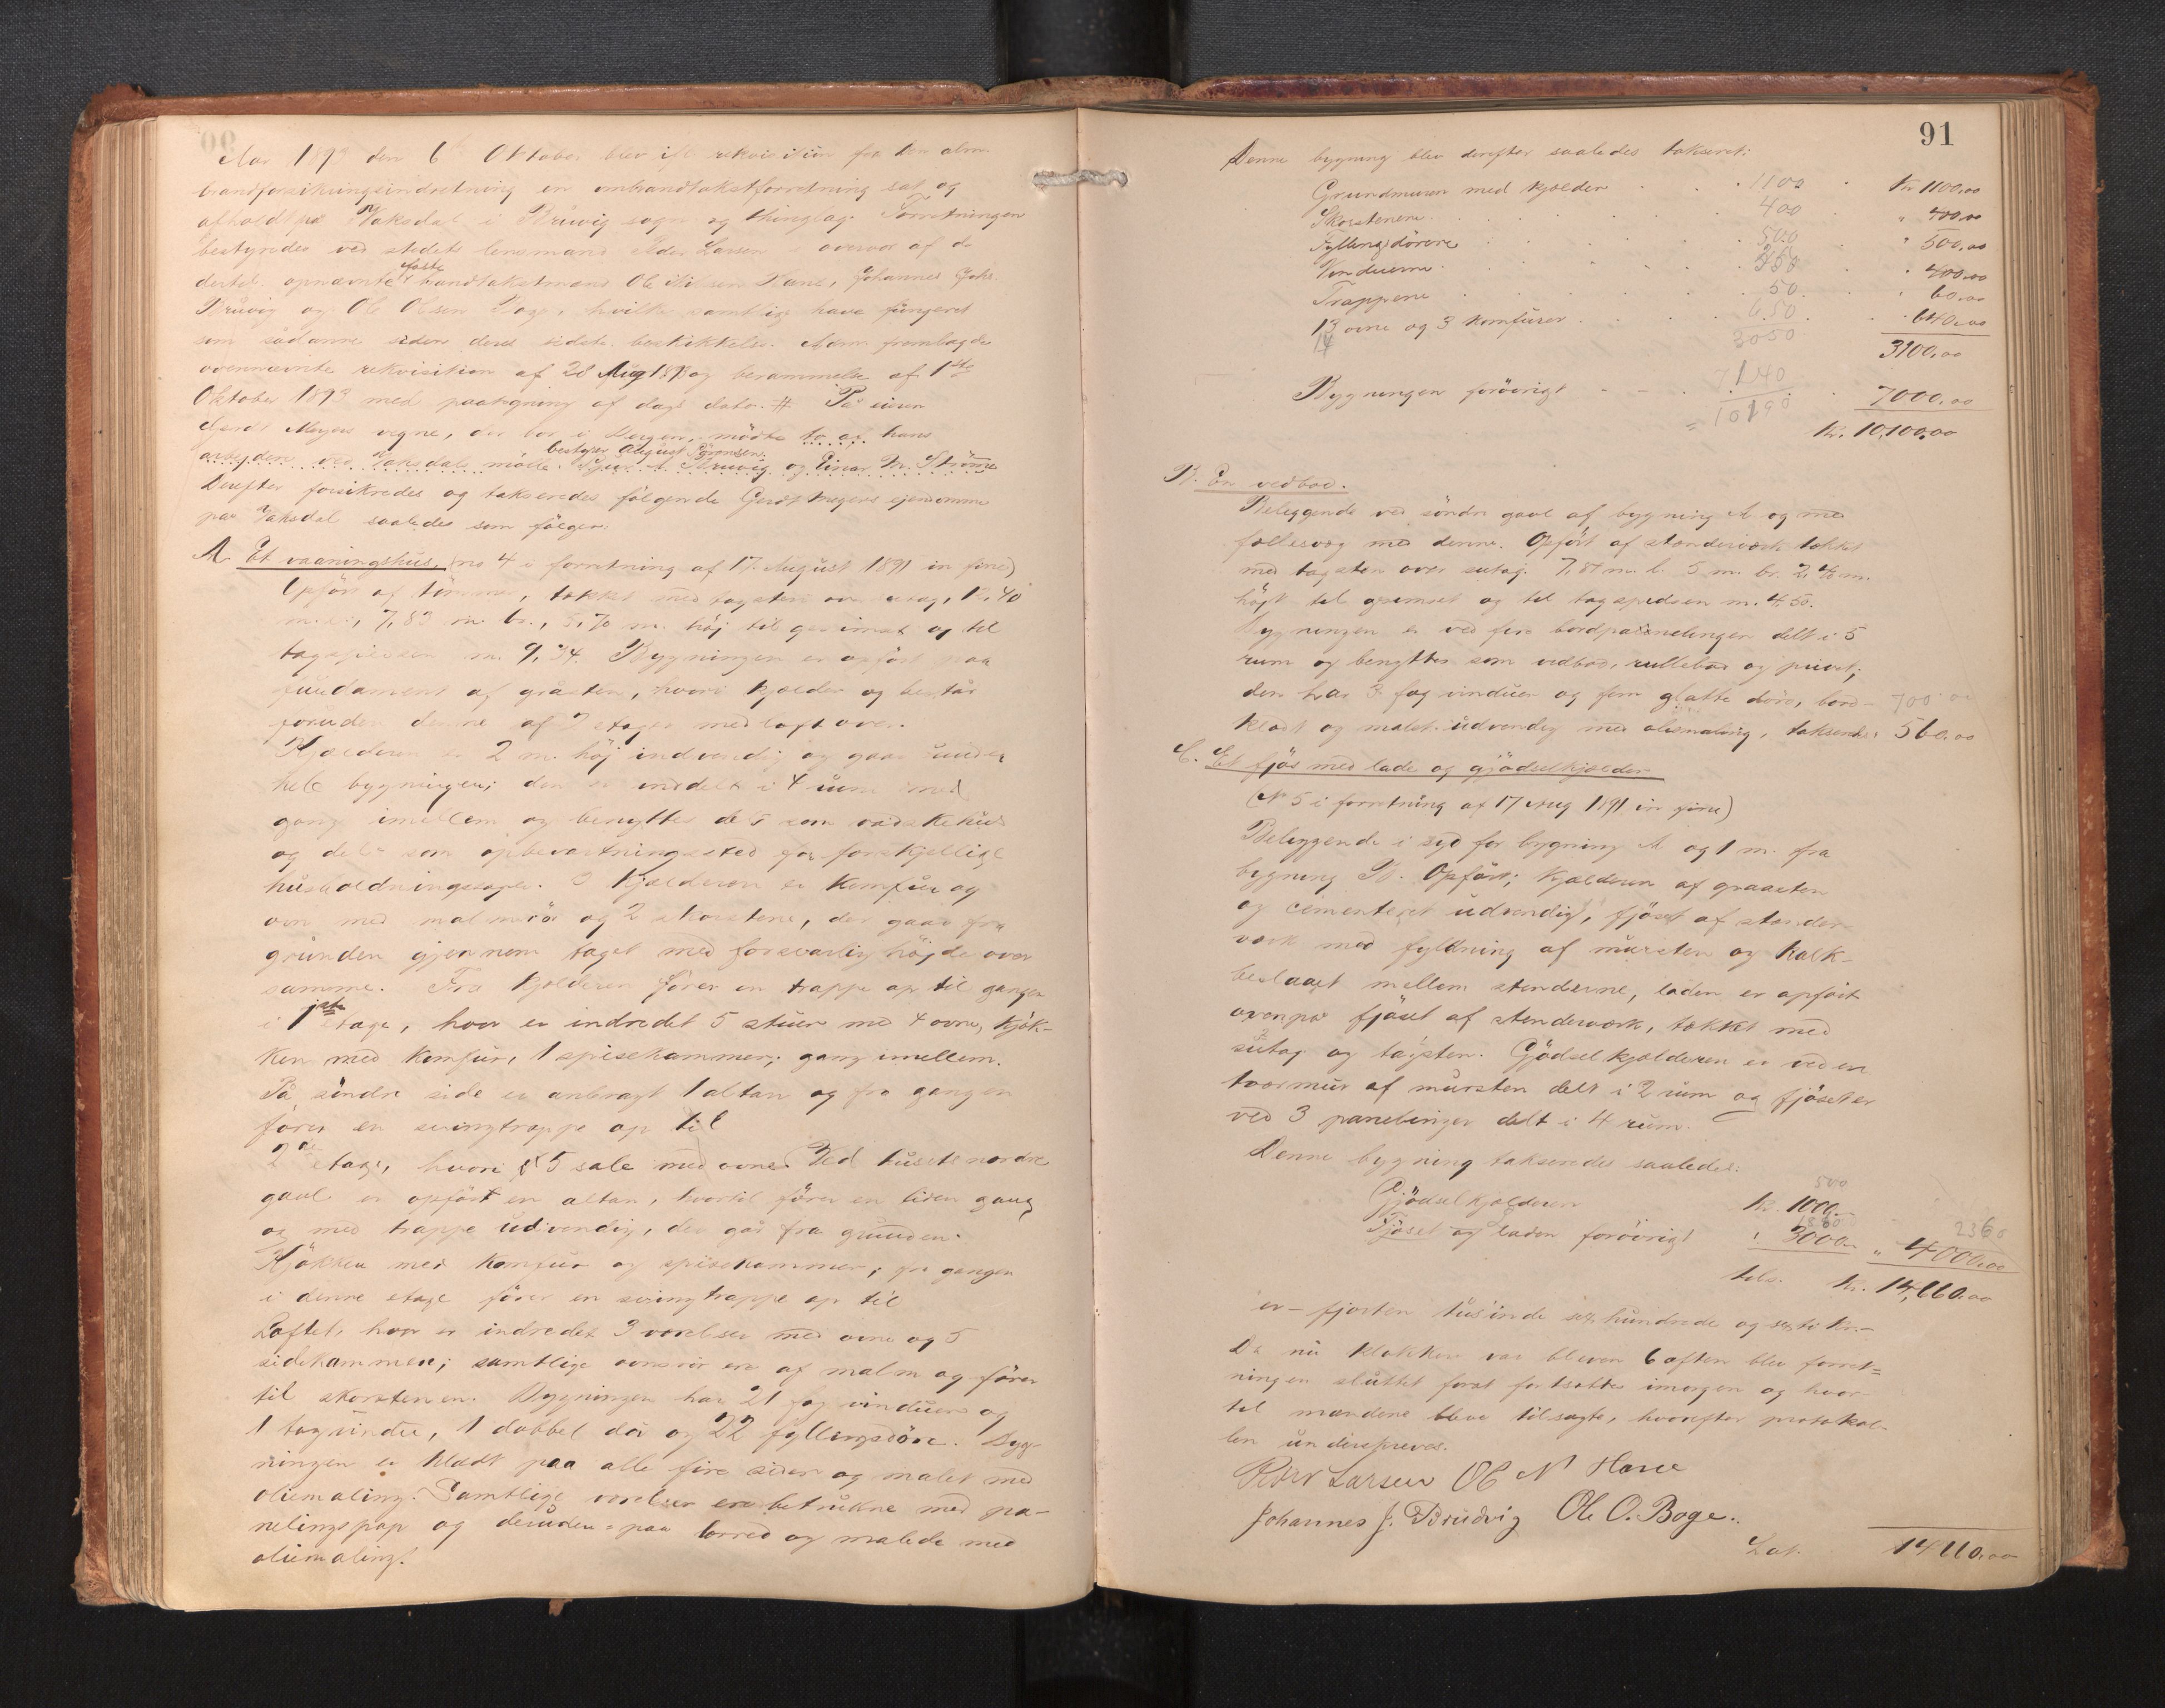 Aar 1893 den 6te Oktober blev ifl rekvisition fra den alm.
brandforsikringsindretning en ombrandtakstforretning sat og
afholdt paa Vaksdal i Bruvig sogn og thinglag. Forretningen
bestyredes ved stedets lensmand Peder Larsen i overvær af de
dertil opnævnte faste brandtakstmænd Ole Nilsen Hane, Johannes Johs
Bruvig og Ole Olsen Boge, hvilke samtlige have fungeret
som sådanne siden deres sidste beskikkelse. Adm. fremlagde
ovennævnte rekvisition af 28 Aug 1893 og berammelse af 1ste
Oktober 1893 med paategning af dags dato. # På eieren
Gerdt Meyers vegne, der bor i Bergen, mødte to af hans
arbejdere ved Vaksdals mølle. bestyrer August Sjur A. Bruvig og Einar M. Strømme
Derefter forsikredes og takseredes følgende Gerdt Meyers ejendomme
paa Vaksdal saaledes som følger:
A. Et vaaningshus, (no 4 i forretning af 17. August 1891 in fine)
Opført af tømmer, tækket med tagsten over sutag, 12,40
m. l., 7,83 m. br., 5,70 m. høj til gesimst og til
tagspidsen m. 9,34. Bygningen er opført paa
fundament af gråsten, hvori kjælder og består
foruden denne af 2 etager med loft over.
Kjælderen er 2 m. høj indvendig og gaar under
hele bygningen; den er inddelt i 4 rum med
gang imellem og benyttes dels som vadskehus
og dels som opbevartningssted for forskjellige
husholdningssager. I kjælderen er komfur og
ovn med malmrör og 2 skorstene, der gaar fra
grunden gjennem taget med forsvarlig højde over
samme. Fra kjælderen fører en trappe op til gangen
i 1ste etage, hvor er indredet 5 stuer med 4 ovne, kjök-
ken med komfur, 1 spisekammer; gang imellem.
På söndre side er anbragt 1 altan og fra gangen
förer en svingtrappe op til
2de etage, hvori 5 sale med ovne. Ved husets nordre
gavl er opført en altan, hvortil fører en liden gang
og med trappe udvendig, der går fra grunden.
Kjökken med komfur og spisekammer; fra gangen
i denne etage fører en svingtrappe op til
Loftet, hvor er indredet 3 værelser med ovne og 5
sidekammer; samtlige ovnsrör ere af malm og fører
til skorstenen. Bygningen har 21 fag vinduer og
1 tagvindu, 1 dobbel dör og 22 fyllingsdöre. Byg-
ningen er klædt paa alle fire sider og malet med
oliemaling. Samtlige værelser ere betrukne med pa-
nelingspap og desuden paa lerred og malede med
oliemaling.
91
Denne bygning blev derefter saaledes takseret:
Grundmuren med kjælder 1100 Kr 1100,00
Skorstenen 400 " 400,00
Fyllingsdörene 500 " 500,00
Vinduerne 350 " 400,00
Trappene 50 " 60,00
13 ovne og 3 komfurer 650 640,00
14 3050 3100,00
Bygningen forövrigt 7140 7000,00
= 10190 Kr. 10,100,00
B. En vedbod.
Beliggende ved söndre gavl af bygning A og med
fællesvæg med denne. Opfört af stænderværk tækket
med tagsten over sutag. 7,87 m. l. 5 m. br. 2,40 m.
höjt til gesimset og til tagspidsen m. 4,50.
Bygningen er ved fire bordpanelinger delt i 5
rum og benyttes som vedbod, rullebod og privet;
den har 3 fag vinduer og fem glatte döre, bord- 700 00
klædt og malet udvendig med oliemaling, takseredes 560.00
C. Et fjös med lade og gjödselkjælder
(No 5 i forretning af 17 Aug 1891 in fine)
Beliggende i syd for bygning A og 1 m. fra
bygning B. Opfört; kjælderen af graasten
og cementeret udvendig, fjöset af stænder-
værk med fyldning af mursten og kalk-
beslaaet mellem stenderne, laden er opfört
ovenpaa fjöset af stenderværk, tækket med
sutag og tagsten. Gjödselkjælderen er ved en
tværmur af mursten delt i 2 rum og fjöset er
ved 3 panelinger delt i 4 rum.
Denne bygning takseredes saaledes:
500
Gjödselkjælderen kr. 1000,-
1860 2360
Fjöset og laden forövrigt " 3000,- " 4000,00
tils. Kr. 14,660.00
er - fjorten tusinde sex hundrede og sexti kr.-
Da nu klokken var bleven 6 aften blev forret=
ningen sluttet forat fortsættes imorgen og hvor-
til mændene bleve tilsagte, hvorefter protokol-
len underskreves.
Peder Larsen Ole N Hane
Johannes J. Brudvig Ole O. Boge.
Lat. 14660,00